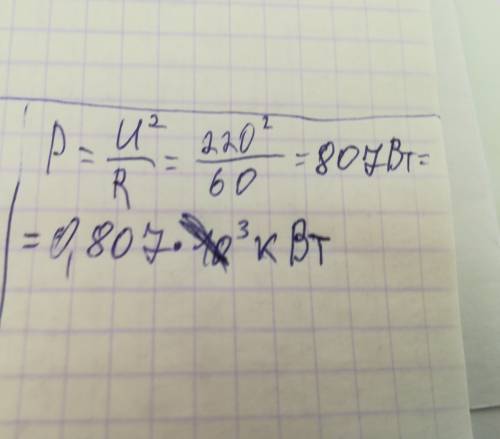 P = U²/R = 220²/60 = 807 Вт =
= 0,807 · ³ кВт